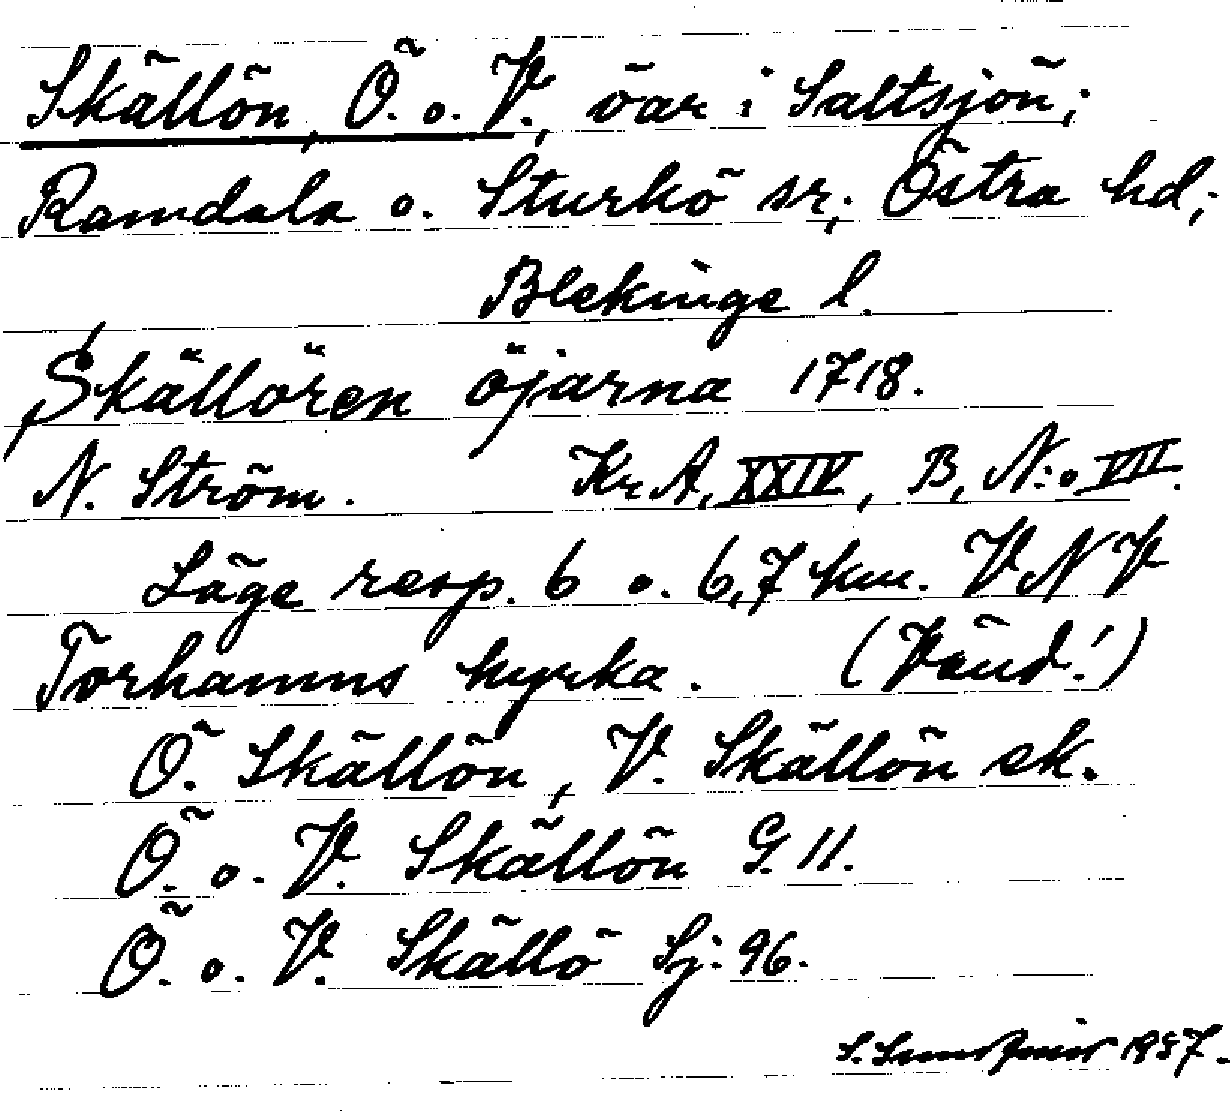 Skällön, Ö. o. V., öar i Saltsjön;
Ramdala o. Sturkö sn; Östra hd;
Blekinge l.
Skällören öjarna 1718.
N. Ström. Kr A, XXIV, B, N:o VII.
Läge resp. 6 o. 6,7 km. VNV
Torhamns kyrka. (Vänd!)
Ö. Skällön, V. Skällön ek.
Ö. o. V. Skällön G. 11.
Ö. o. V. Skällö Sj: 96.
S. 1957.